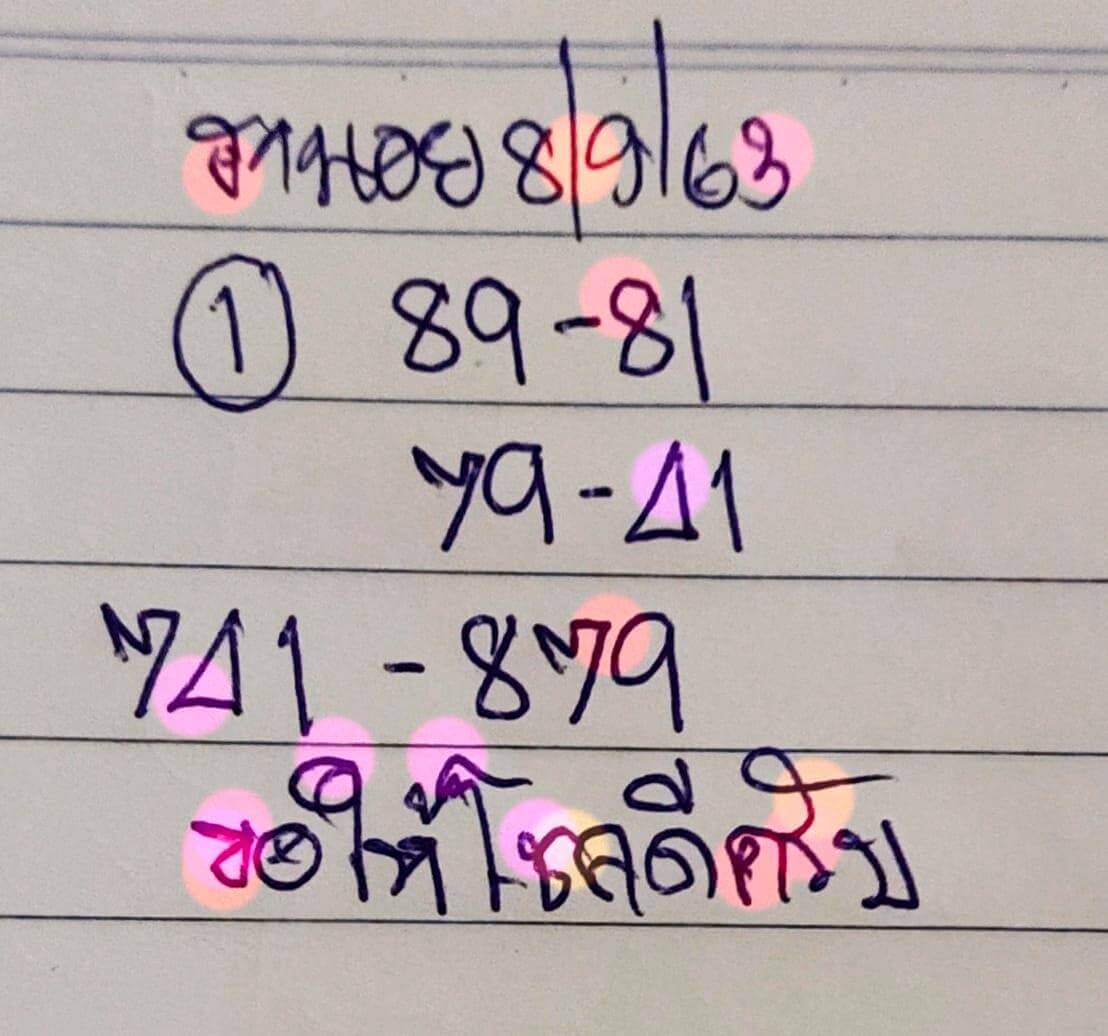 ฮานอย 8/9/63
① 89-81
79-41
741 - 879
ขอให้โชคดีครับ